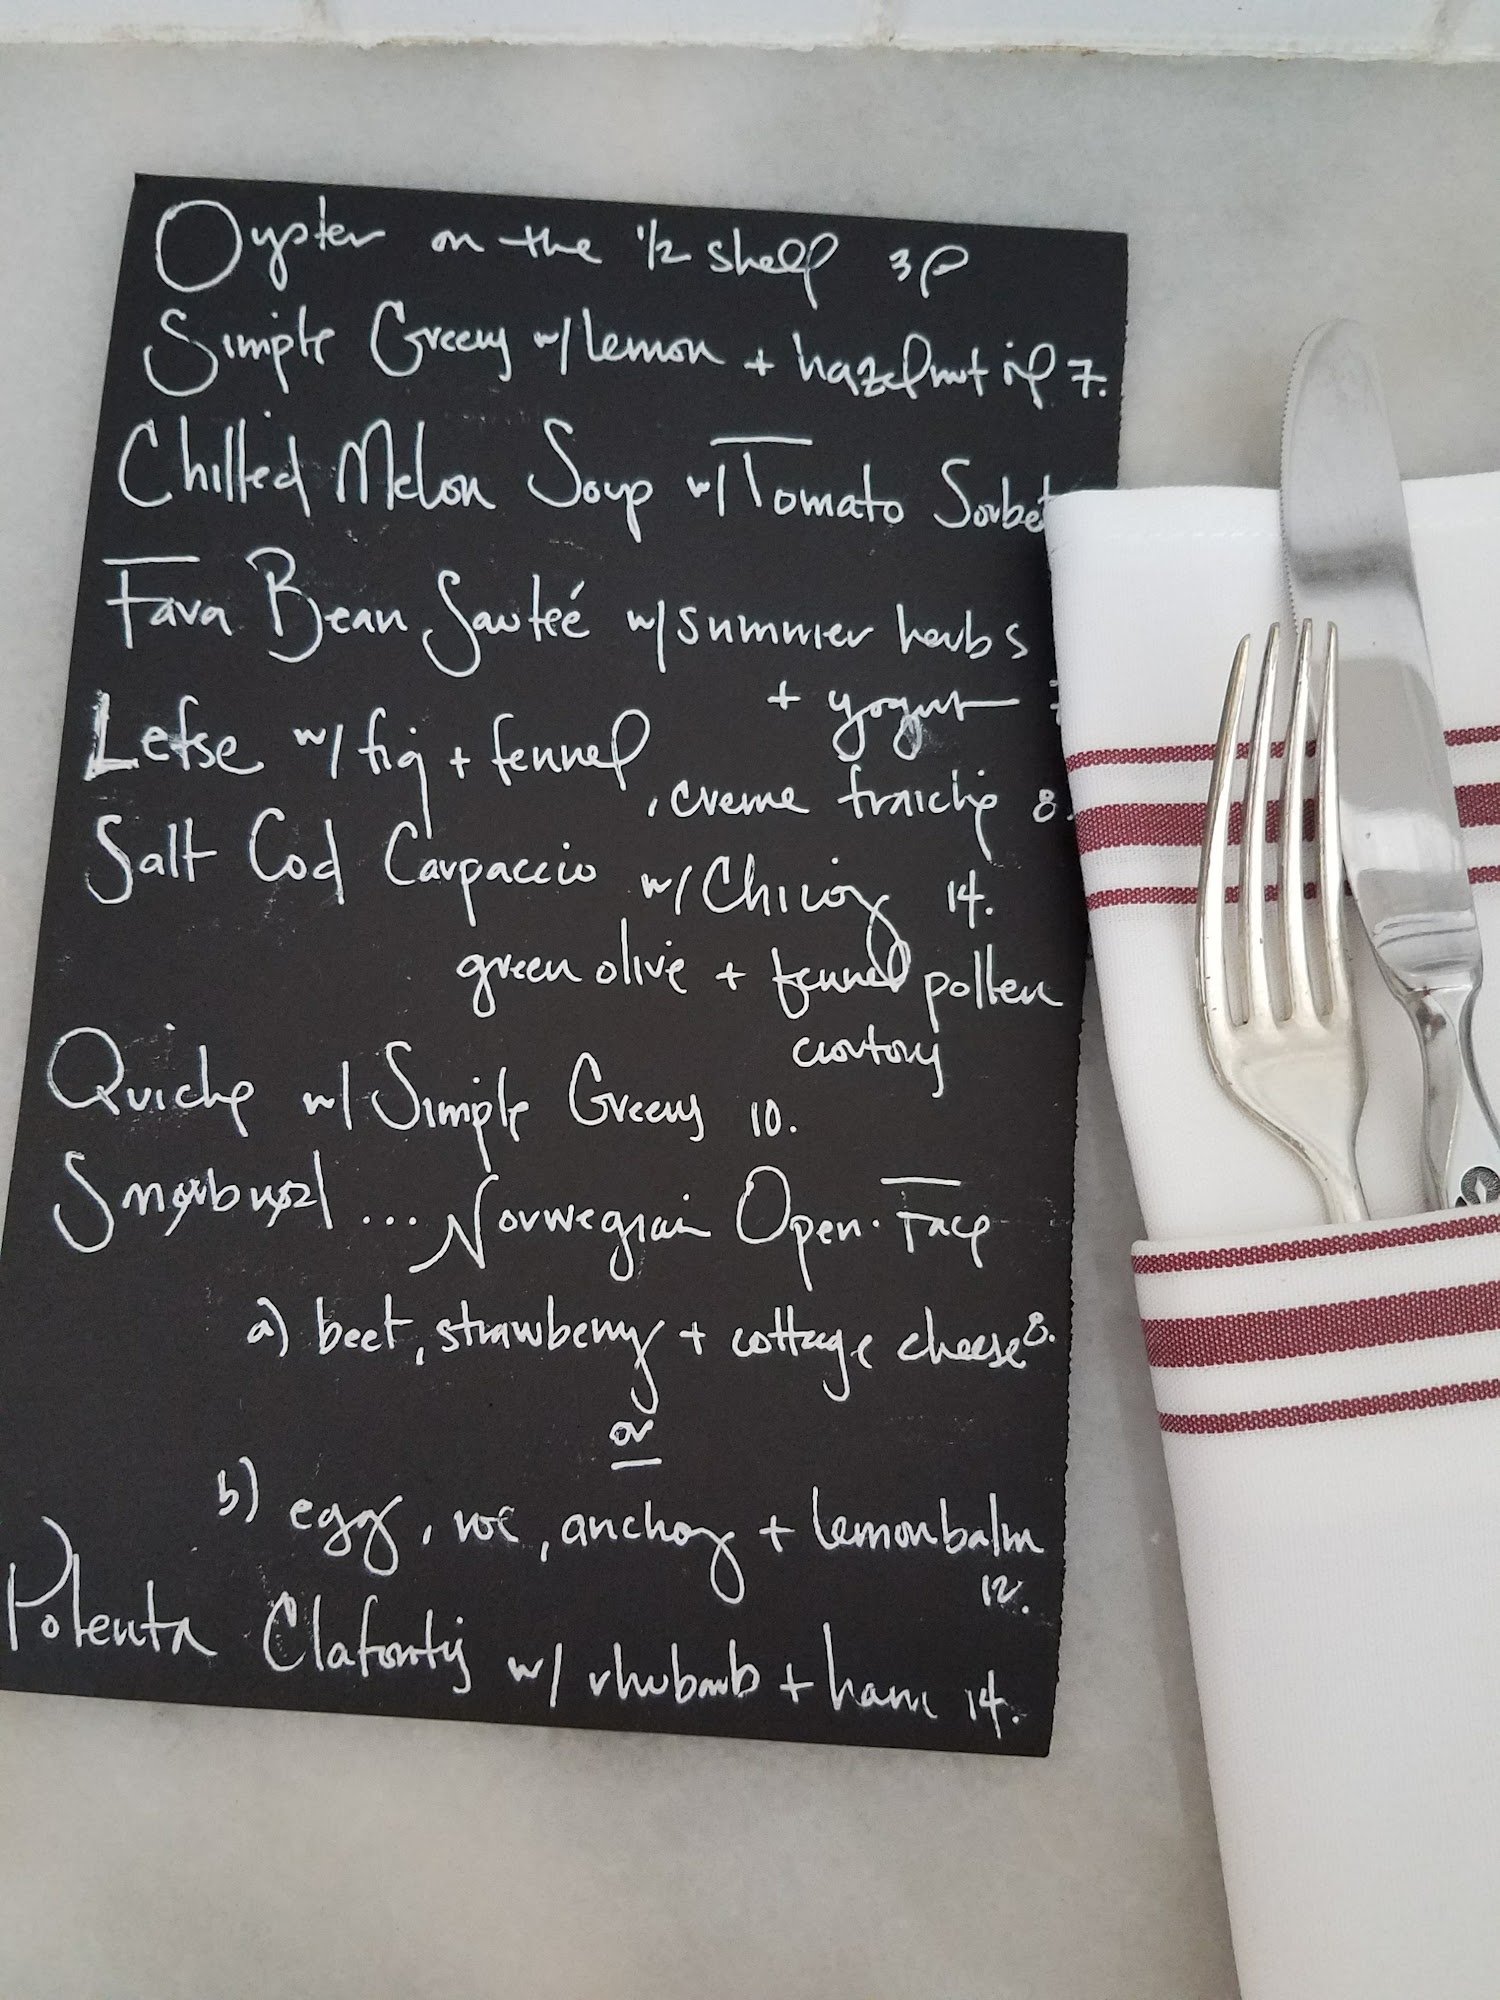 Oyster on the 1/2 shell 3 p
Simple Greens w/ lemon + hazelnut oil 7.
Chilled Melon Soup w/ Tomato Sorbet
Fava Bean Sauteé w/ summer herbs
+ yogurt
Lefse w/ fig + fennel
, creme fraiche 8.
Salt Cod Carpaccio w/ 14.
green olive + fennel pollen
croutons
Quiche w/ Simple Greens 10.
... Norwegian Open-Face
a) beet, strawberry + cottage cheese 8.
or
b) egg, roe, anchovy + lemonbalm
12.
Polenta Clafoutis w/ rhubarb + ham 14.